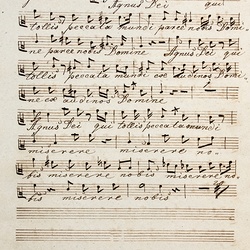 Agnus Dei qui
tollis peccata mundi parce nobis Domi
ne parce nobis Domine Agnus Dei qui
tollis peccata mundi ex audi nos Domi
ne ex audi nos Domine
Agnus Dei qui tollis peccata mundi
miserere miserere no
bis miserere nobis miserere no
bis miserere nobis